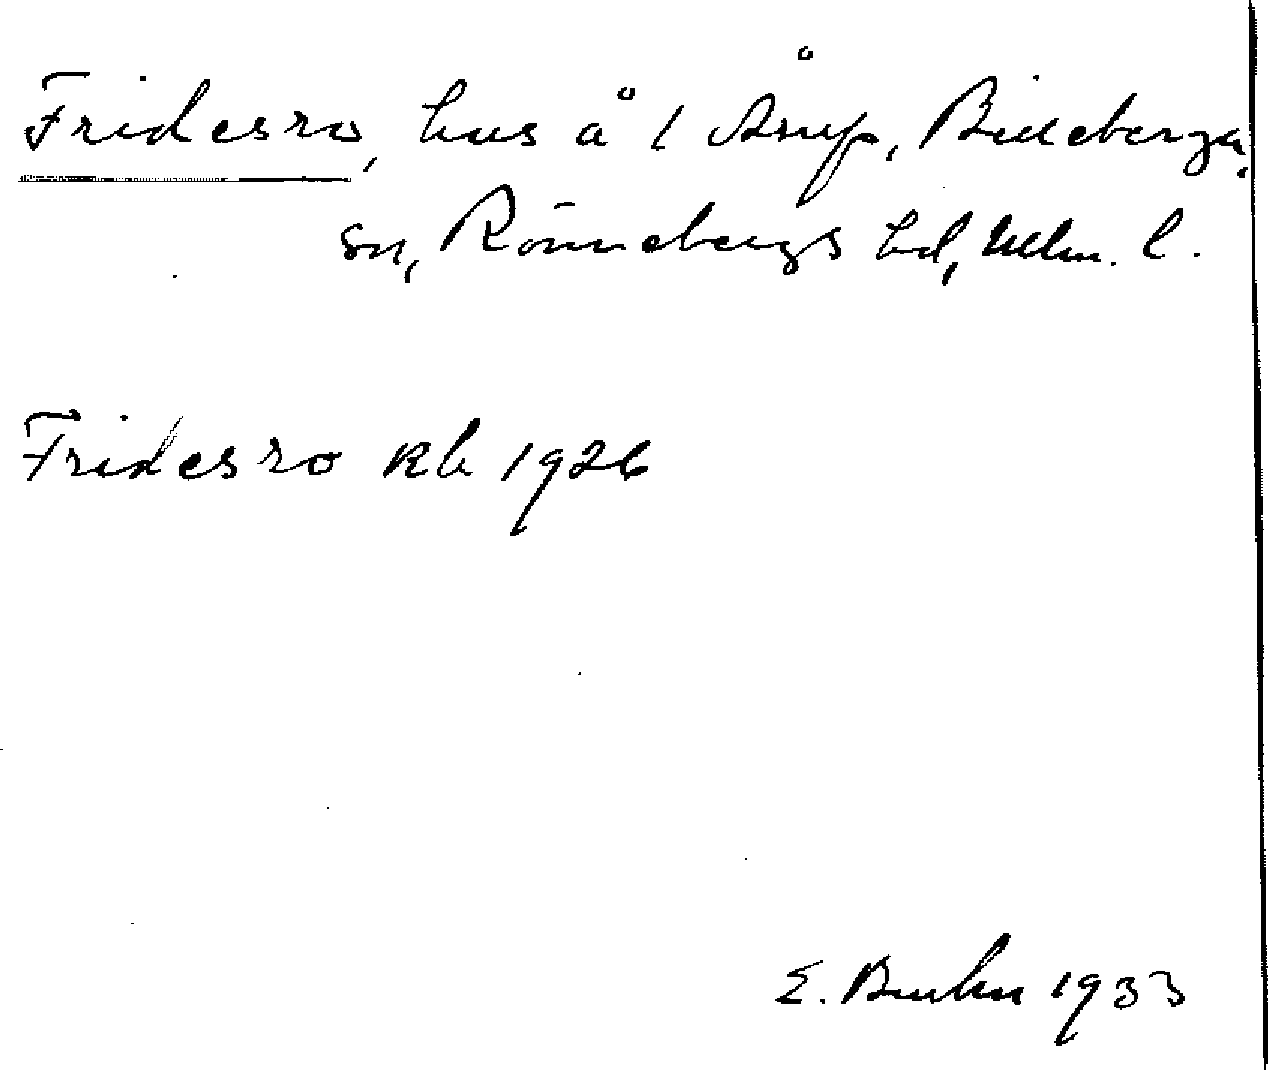 Fridesro, hus å 1 Årup, Billeberga
sn, Rönnebergs hd, Mlm. l.
Fridesro Rb 1926
E. Bruhn 1933